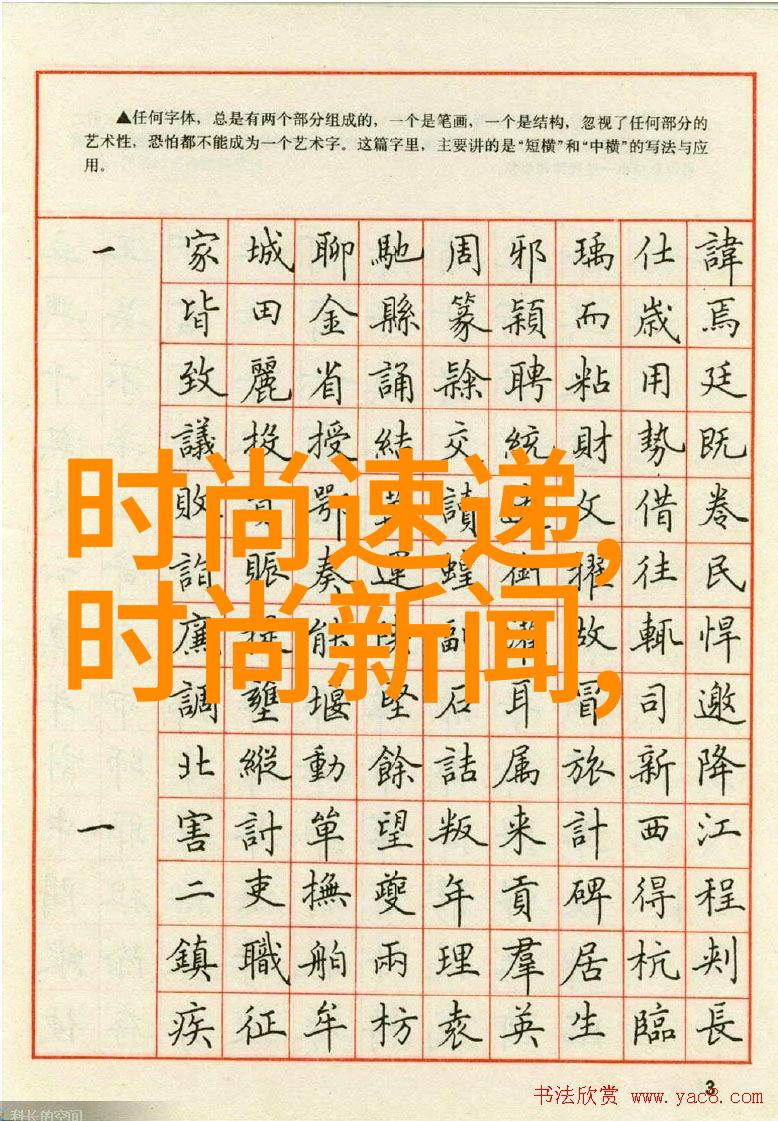 ▲任何字体，总是有两个部分组成的，一个是笔画，一个是结构，忽视了任何部分的
艺术性，恐怕都不能成为一个艺术字。这篇字里，主要讲的是“短横”和“中横”的写法与应
用。
一 家 城 聊 馳 周 邪 瑀 仕 諱
皆 田 金 縣 篆 穎 而 歲 焉
致 麗 省 誦 隸 聘 粘 用 廷
議 投 授 結 交 統 財 勢 既
敗 鄂 讀 文 借 卷
時尚速递,
詣 賑 奏 運 蝗 衝 擢 往 民
廉 能 副 故 輒 悍
时尚新闻,
調 壅 堰 堅 石 耳 冒 司 邀
北 縱 動 餘 詰 属 旅 新 降
一 害 討 單 望 叛 来 計 西 江
二 吏 撫 夔 年 貢 碑 得 程
鎮 職 舶 兩 理 羣 居 杭
疾 征 牟 枋 袁 英 生 臨 長
3
书法欣赏 www.yac8.com
科长的空间